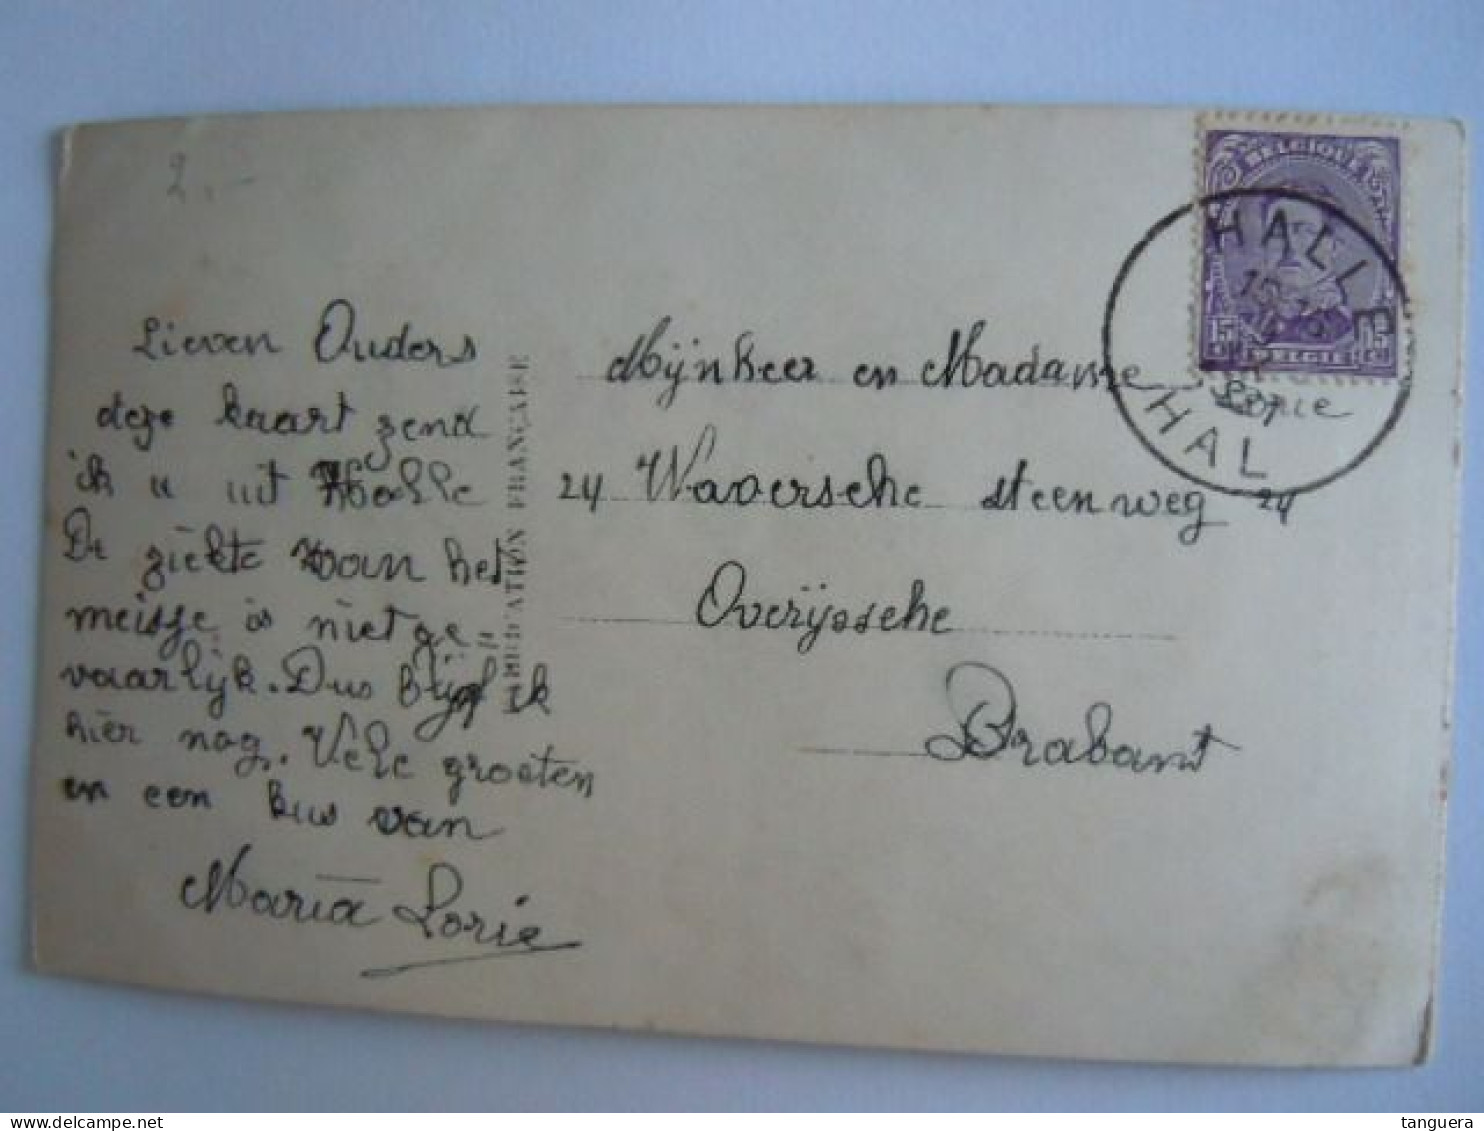 2.-
Lieven Ouders
deze kaart zend
ik u uit Halle
De ziekte van het
meisje is niet ge
vaarlijk. Dus blijf ik
hier nog. Vele groeten
en een kus van
Maria Lorie
FABRICATION FRANÇAISE
BELGIQUE
15 15
BELGIË
HALLE
HAL
Mijnheer en Madame Lorie
24 Waversche steenweg 24
Overijssche
Brabant
tanguera